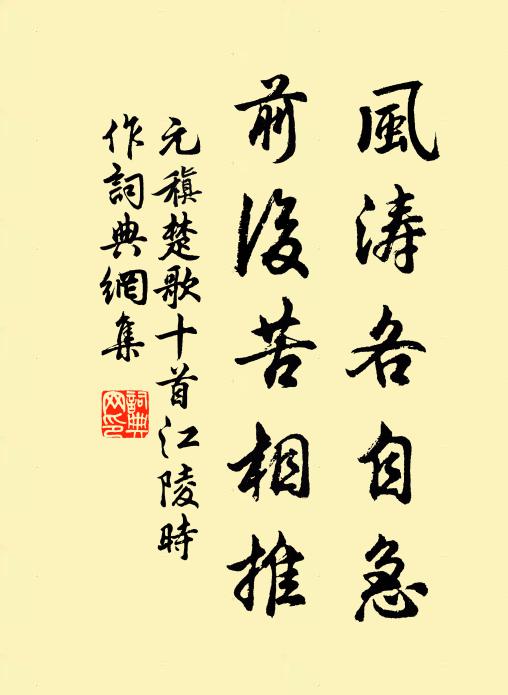 風涛各自急
前後苦相推
元稹楚歌十首江陵時
作詞典網集
詞典
网印